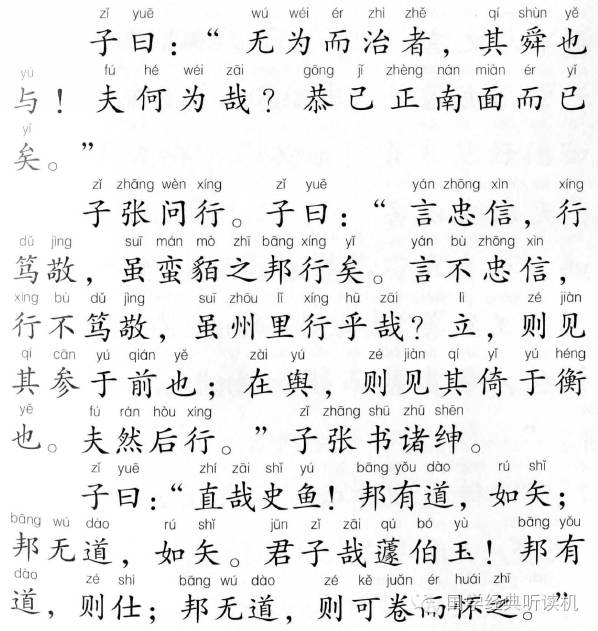 zǐ yuē wú wéi ér zhì zhě qí shùn yě
子曰：“无为而治者，其舜也
yú fú hé wéi zāi gōng jǐ zhèng nán miàn ér yǐ
与！夫何为哉？恭己正南面而已
yǐ
矣。”
zǐ zhāng wèn xíng zǐ yuē yán zhōng xìn xíng
子张问行。子曰：“言忠信，行
dǔ jìng suī mán mò zhī bāng xíng yǐ yán bù zhōng xìn
笃敬，虽蛮貊之邦行矣。言不忠信，
xíng bù dǔ jìng suī zhōu lǐ xíng hū zāi lì zé jiàn
行不笃敬，虽州里行乎哉？立，则见
qí cān yú qián yě zài yú zé jiàn qí yǐ yú héng
其参于前也；在舆，则见其倚于衡
yě fú rán hòu xíng zǐ zhāng shū zhū shēn
也。夫然后行。”子张书诸绅。
zǐ yuē zhí zāi shǐ yú bāng yǒu dào rú shǐ
子曰：“直哉史鱼！邦有道，如矢；
bāng wú dào rú shǐ jūn zǐ zāi qú bó yù bāng yǒu
邦无道，如矢。君子哉蘧伯玉！邦有
dào zé shì bāng wú dào zé kě juǎn ér huái zhī
道，则仕；邦无道，则可卷而怀之。”
国学经典听读机